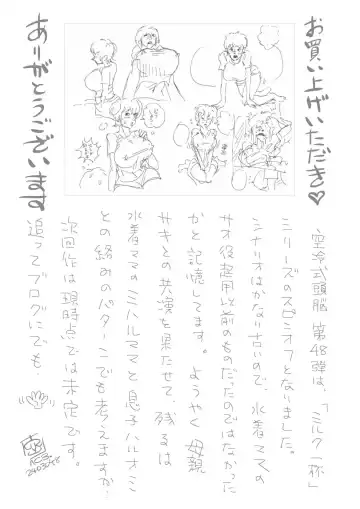 お買い上げいただき♡
ありがとうございます
空冷式頭脳 第48弾は、「ミルク一杯」
シリーズのスピンオフとなりました。
シナリオはかなり古いので、水着ママの
サオ役起用以前のものだったのではなかった
かと記憶してます。ようやく母親
サキとの共演を果たせて、残るは
水着ママのミハルママと息子ハルオミ
との絡みのパターンでも考えますか…
次回作は現時点では未定です。
追ってブログにでも。